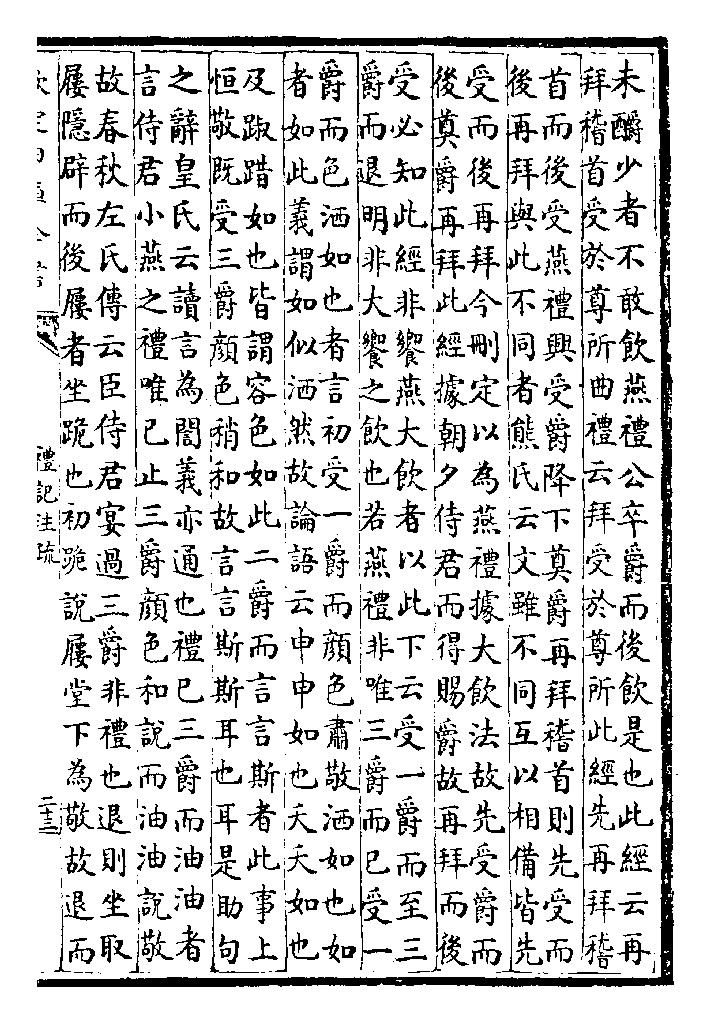 未釂少者不敢飲燕禮公卒爵而後飲是也此經云再
拜稽首受於尊所曲禮云拜受於尊所此經先再拜稽
首而後受燕禮興受爵降下奠爵再拜稽首則先受而
後再拜與此不同者熊氏云文雖不同互以相備皆先
受而後再拜今刪定以為燕禮據大飲法故先受爵而
後奠爵再拜此經據朝夕侍君而得賜爵故再拜而後
受必知此經非饗燕大飲者以此下云受一爵而至三
爵而退明非大饗之飲也若燕禮非唯三爵而已受一
爵而色洒如也者言初受一爵而顔色肅敬洒如也如
者如此義謂如似洒然故論語云申申如也夭夭如也
及踧踖如也皆謂容色如此二爵而言言斯者此事上
恒敬既受三爵顔色稍和故言言斯斯耳也耳是助句
之辭皇氏云讀言為誾義亦通也禮已三爵而油油者
言侍君小燕之禮唯已止三爵顔色和說而油油說敬
故春秋左氏傳云臣侍君宴過三爵非禮也退則坐取
屨隱辟而後屨者坐跪也初跪說屨堂下為敬故退而
禮記注疏
二十三